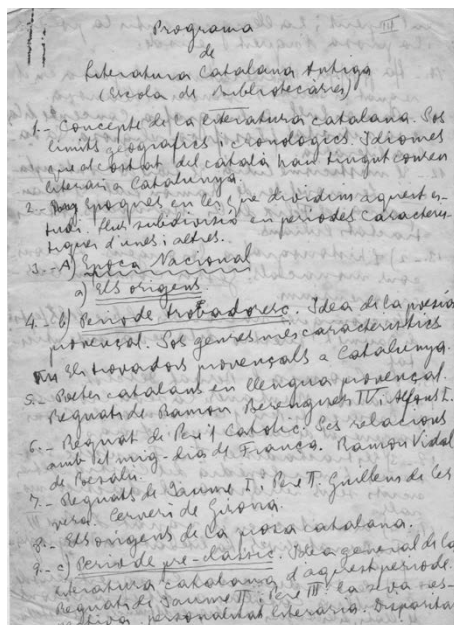 III
Programa
de
Literatura Catalana Antiga
(Escola de Bibliotecàries)
1.- Concepte de la literatura catalana. Sos
límits geogràfics i cronològics. Idiomes
que al costat del català han tingut conreu
literari a Catalunya.
2.- Epoques en les que dividim aquest es-
tudi. Llur subdivisió en períodes caracterís-
tiques d'unes i altres.
3.- A) Epoca Nacional
a) Els orígens.
4.- b) Període trobadoresc. Idea de la poesia
provençal. Sos genres més característics
Els trovadors provençals a Catalunya.
5.- Poetes catalans en llengua provençal.
Regnats de Ramon Berenguer IV i Alfons I.
6.- Regnat de Pere'l Catòlic. Ses relacions
amb el mig-dia de França. Ramon Vidal
de Besalú.
7.- Regnats de Jaume I i Pere II. Guillem de Cer-
vera. Cerverí de Girona.
8.- Els orígens de la prosa catalana.
9.- c) Període pre-clàssic. Idea general de la
literatura catalana d'aquest període.
Regnats de Jaume II i Pere III: la seva es-
personalitat literària.